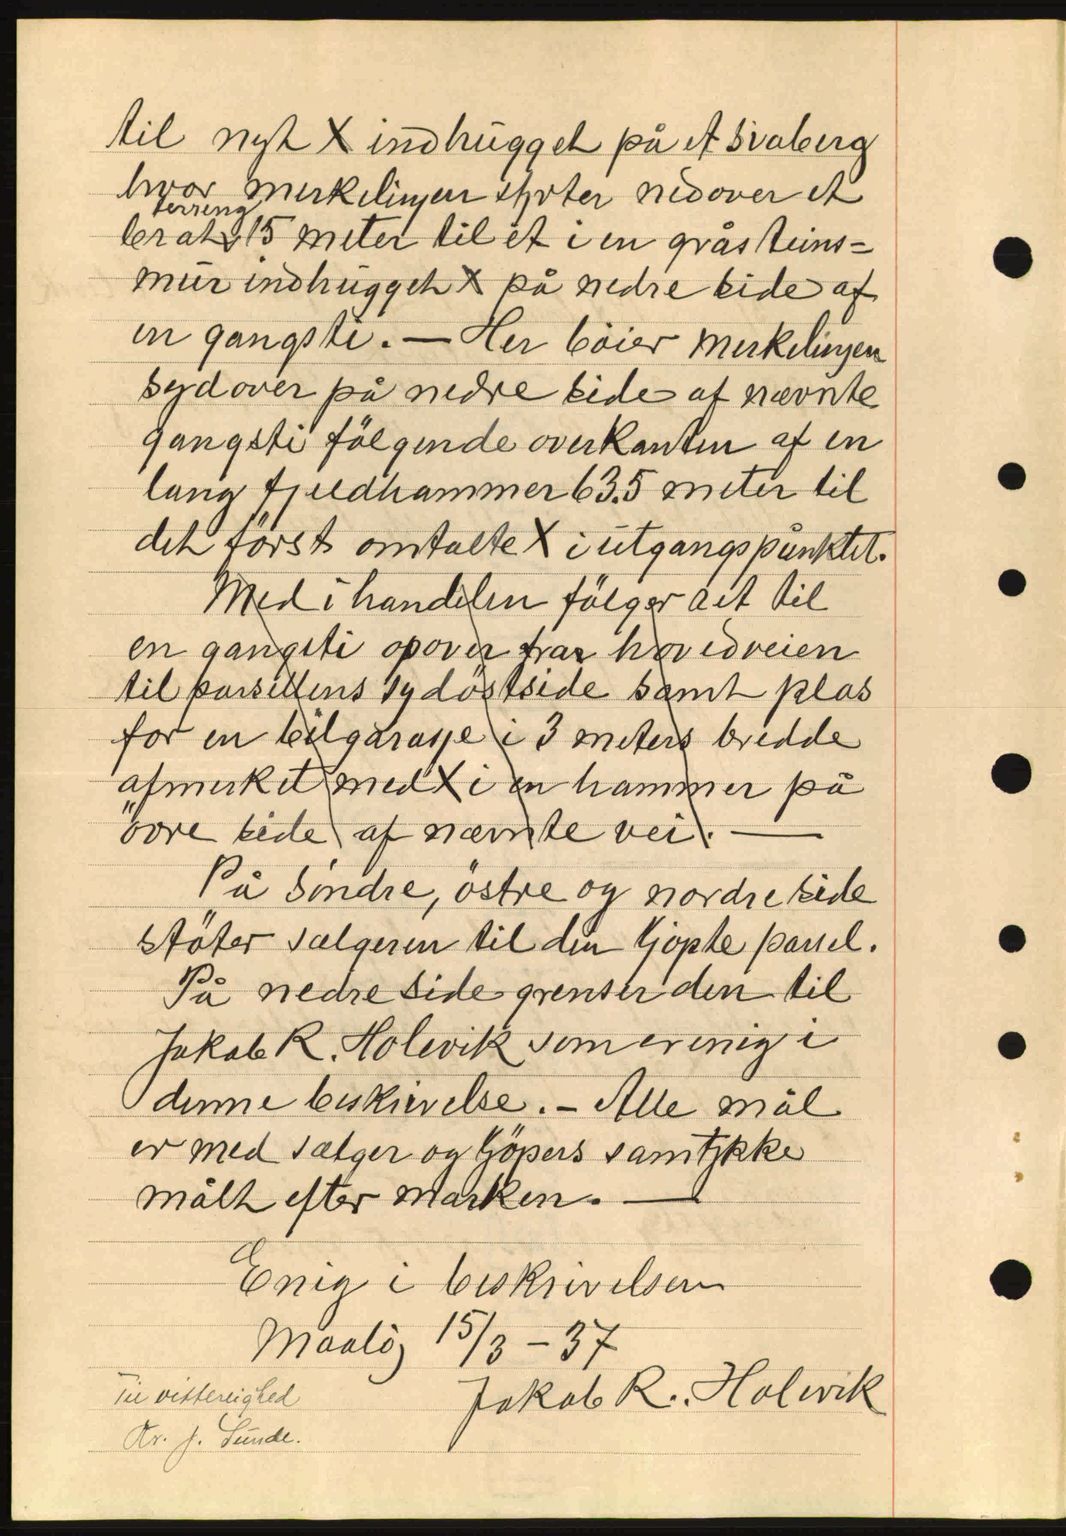 til nyt X indhugget på et svaberg
hvor merkelinjen styrter nedover et
terreng
brat 15 meter til et i en gråsteins=
mur indhugget X på nedre side af
en gangsti. — Her böier merkelinjen
sydover på nedre side af nævnte
gangsti fölgende overkanten af en
lang fjeldhammer 63.5 meter til
det först omtalte X i utgangspunktet.
Med i handelen fölger ret til
en gangsti opover fra hovedveien
til parsellens sydöstside samt plas
for en bilgarasje i 3 meters bredde
afmerket med X i en hammer på
övre side af nævnte vei. —
På söndre, östre og nordre side
stöter sælgeren til den kjöpte parsel.
På nedre side grenser den til
Jakob R. Holevik som er enig i
denne beskrivelse. - Alle mål
er med sælger og kjöpers samtykke
målt efter marken. —
Enig i beskrivelsen
Maalöy 15/3 - 37
Jakob R. Holevik
Til vitterlighed
Kr. J. Sunde.